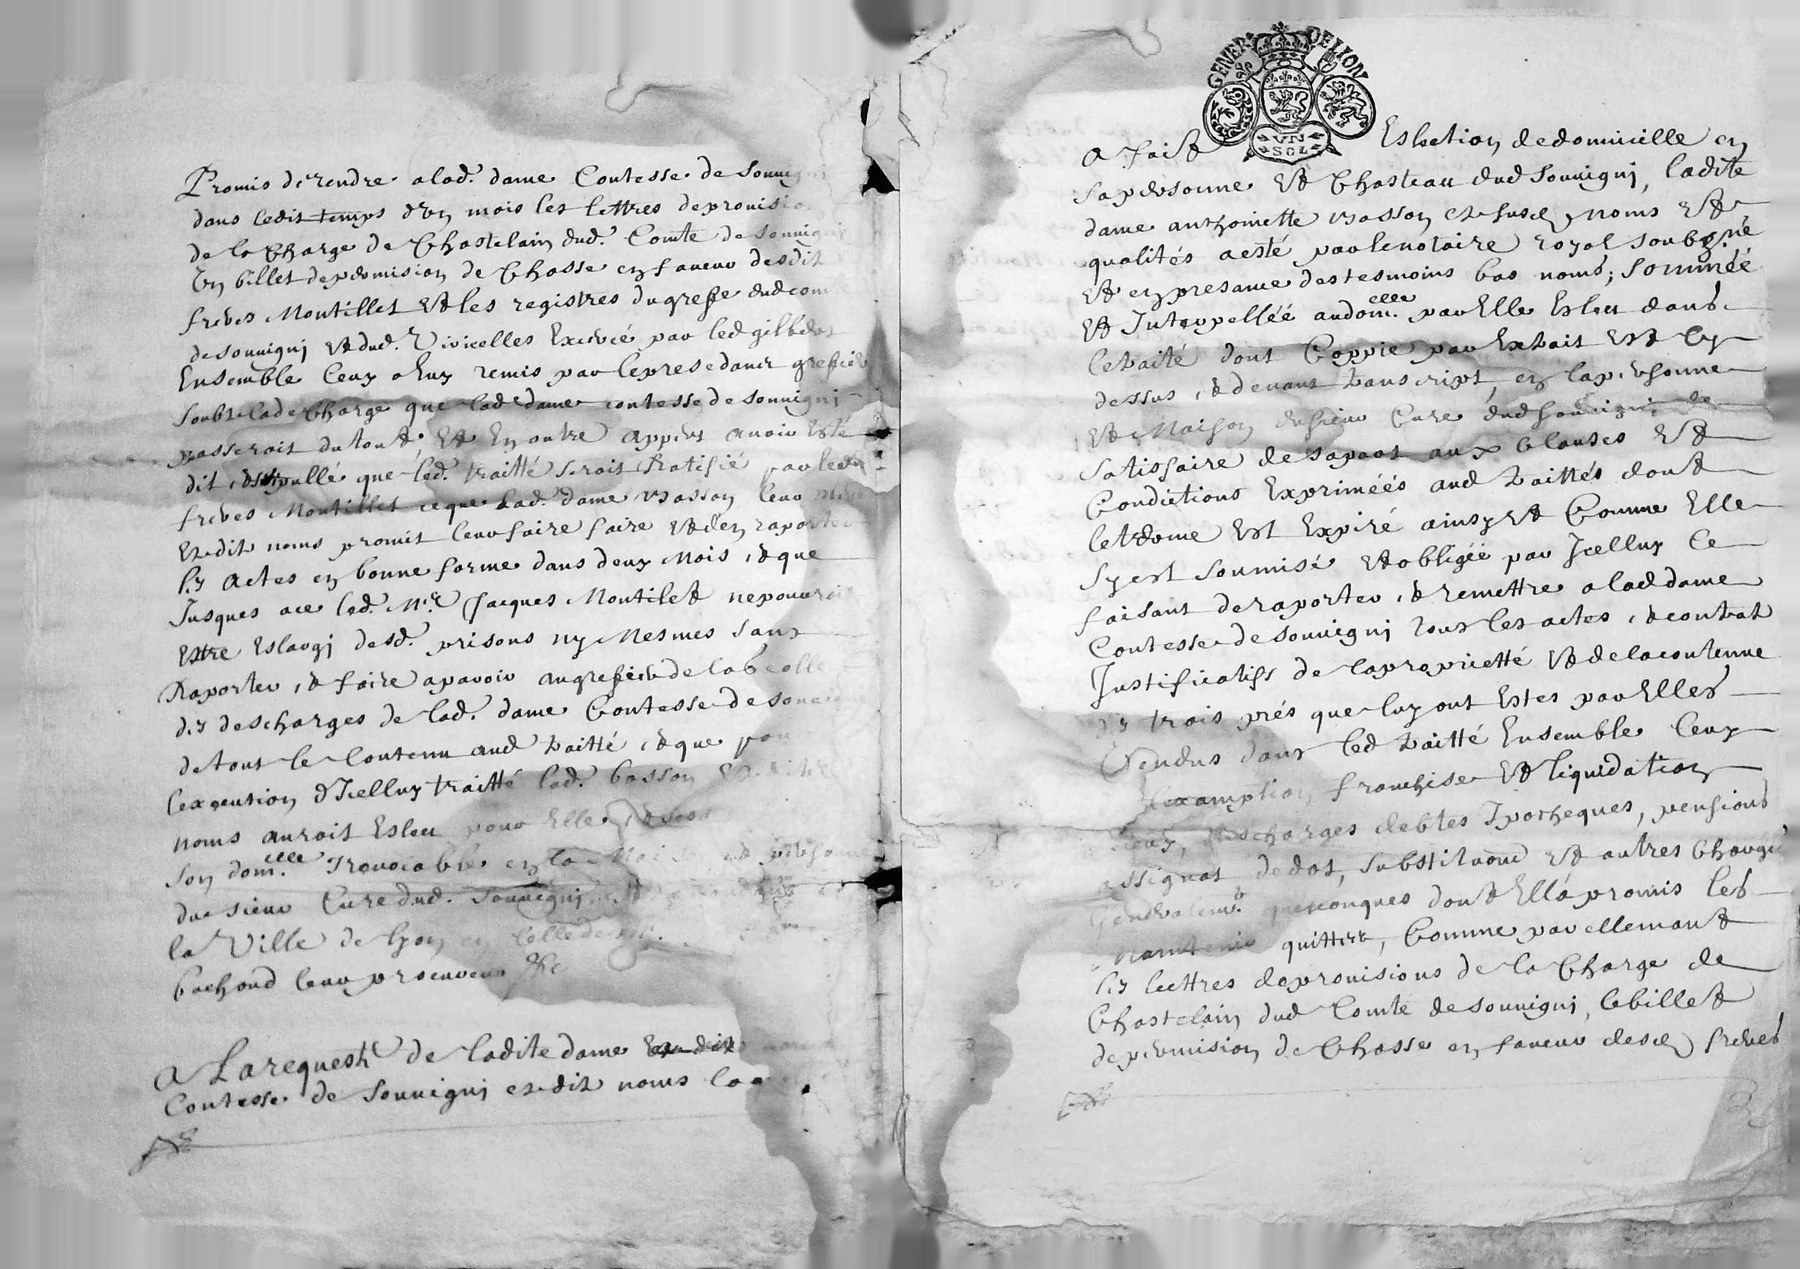 Promis de rendre a lad. dame Contesse de Souvig
dans ledit temps d'un mois les lettres de provisio
de la Charge de Chastelain dud. Comté de Souvigni
Un billet de permision de Chasse en faveur desdit
freres Montillet et les registres du grefe dud com
de Souvigni et dud. Vivicelles Exercé par led gilbert
Ensemble Ceux a luy remis par le presedant grefier
soubz la decharge que lad dame contesse de Souvigni
passeroit du tout, Et En outre appert avoir Esté
dit et stipullé que led. traitté seroit Ratifié par lesd
freres Montillet ce que Lad. dame basson leur mere
Esdits noms promit leur faire faire et d'en raporter
les actes en bonne forme dans deux Mois, et que
Jusques a ce led. Me Jacques Montilet ne pouvroit
Estre Eslargi desd. prisons ny Mesmes sans
Raporter, et faire aparoir au grefier de la geolle
des descharges de lad. dame Contesse de Souvigni
de tout le Contenu aud traitté, et que pour
l'exequution d'Icelluy traitté lad. basson Esdits
noms auroit Esleu pour Elle, et
son dom.elle Irrevocable en la Maison et personne
du sieur Curé dud. Souvigni
la Ville de Lyon en Celle de
bachoud leur procureur &c
A La requeste de ladite dame
Contesse de Souvigni esdits noms la
GENER DE LION
VN SOL
A faict Eslection de domicille en
sa personne et Chasteau dud Souvigni, ladite
dame anthoinette basson Esdits noms Et
qualités a esté par le notaire royal soubzsigné
et en presance des tesmoins bas només; sommée
et Interpellée au dom.elle par Elle Esleu dans
le traité dont Coppie par Extrait Est Cy
dessus, et devant transcript, en la personne
et Maison du sieur Curé dud Souvigni, de
satisfaire de sa part aux Clauses Et
Conditions Exprimées aud traittés dont
le terme Est Expiré ainsy et Comme Elle
s'y est soumise et obligée par Icelluy Ce
faisant de raporter, et remettre a lad dame
Contesse de Souvigni tous les actes, et contrat
Justificatifs de la proprietté et de la contenue
des trois prés que luy ont Estes par Elles
Vendus dans led traitté Ensemble Ceux
l'examption, franchise et liquidation
descharges debtes Ipotheques, pensions
assignat de dot, substitutions et autres Charges
Generalem.t quelconques dont Ell'a promis les
Maintenir quittes, Comme pareillemant
les lettres de provisions de la Charge de
Chastelain dud Comté de Souvigni, le billet
de permision de Chasse en faveur desd freres